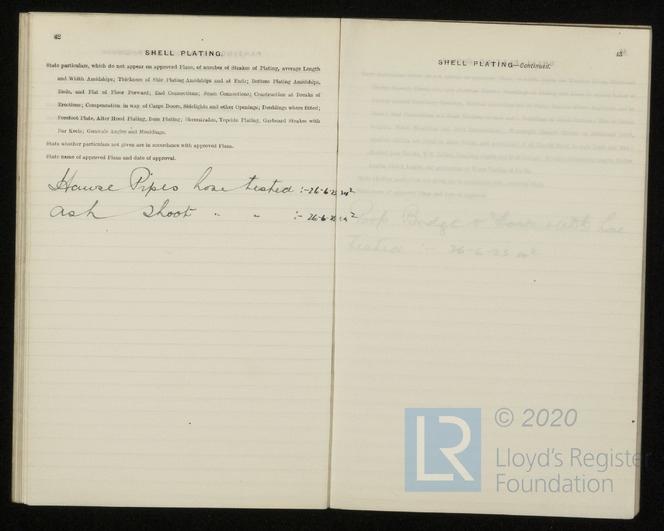 42
SHELL PLATING.
State particulars, which do not appear on approved Plans, of number of Strakes of Plating, average Length
and Width Amidships; Thickness of Side Plating Amidships and at Ends; Bottom Plating Amidships,
Ends, and Flat of Floor Forward; End Connections; Seam Connections; Construction at Breaks of
Erections; Compensation in way of Cargo Doors, Sidelights and other Openings; Doublings where fitted;
Forefoot Plate, After Hood Plating, Boss Plating, Sheerstrakes, Topside Plating, Garboard Strakes with
Bar Keels; Gunwale Angles and Mouldings.
State whether particulars not given are in accordance with approved Plans.
State name of approved Plans and date of approval.
Hawse Pipes hose tested :- 26-6-23
ash shoot " " :- 26-6-23
43
SHELL PLATING—Continued.
Poop Bridge & hose
tested :- 26-6-23
LR
© 2020
Lloyd's Register
Foundation